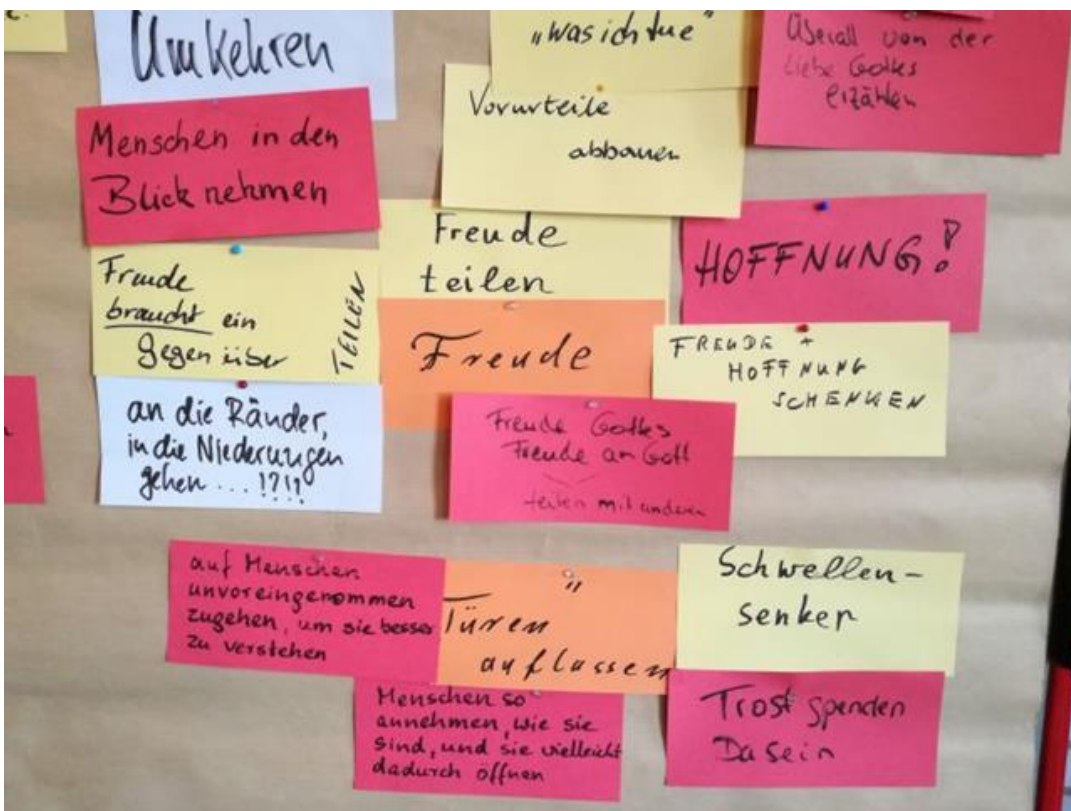 Umkehren
"was ich tue"
Überall von der
Liebe Gottes
erzählen
Menschen in den
Blick nehmen
Vorurteile
abbauen
Freude
teilen
HOFFNUNG!
Freude
braucht ein
Gegenüber
TEILEN
Freude
FREUDE +
HOFFNUNG
SCHENKEN
an die Ränder,
in die Niederungen
gehen...!?!?
Freude Gottes
Freude an Gott
teilen mit anderen
auf Menschen
unvoreingenommen
zugehen, um sie besser
zu verstehen
Türen
auflassen
Schwellen-
senker
Menschen so
annehmen, wie sie
sind, und sie vielleicht
dadurch öffnen
Trost spenden
Dasein